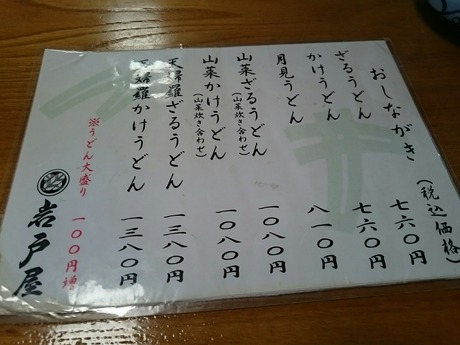 おしながき(税込価格)
ざるうどん 七六〇円
かけうどん 七六〇円
月見うどん 八一〇円
山菜ざるうどん(山菜炊き合わせ) 一〇八〇円
山菜かけうどん(山菜炊き合わせ) 一〇八〇円
天婦羅ざるうどん 一三八〇円
天婦羅かけうどん 一三八〇円
※うどん大盛り 一〇〇円増
岩戸屋